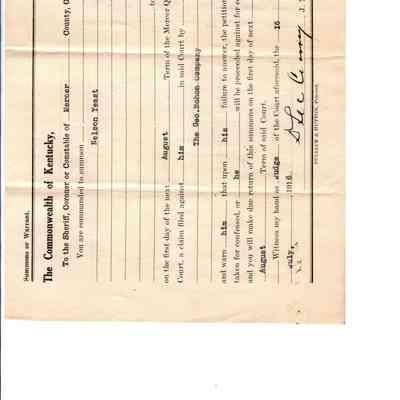 Summons or Warrant.
The Commonwealth of Kentucky,
To the Sheriff, Coroner or Constable of Mercer County, G
You are commanded to summon
Nelson Yeast
to
on the first day of the next August Term of the Mercer Q
Court, a claim filed against him in said Court by
The Geo. Bohon Company
and warn him that upon his failure to answer, the petition
taken for confessed, or he will be proceeded against for co
and you will make due return of this summons on the first day of next
August Term of said Court.
Witness my hand as Judge of the Court aforesaid, the 16
July, 1916.
J.